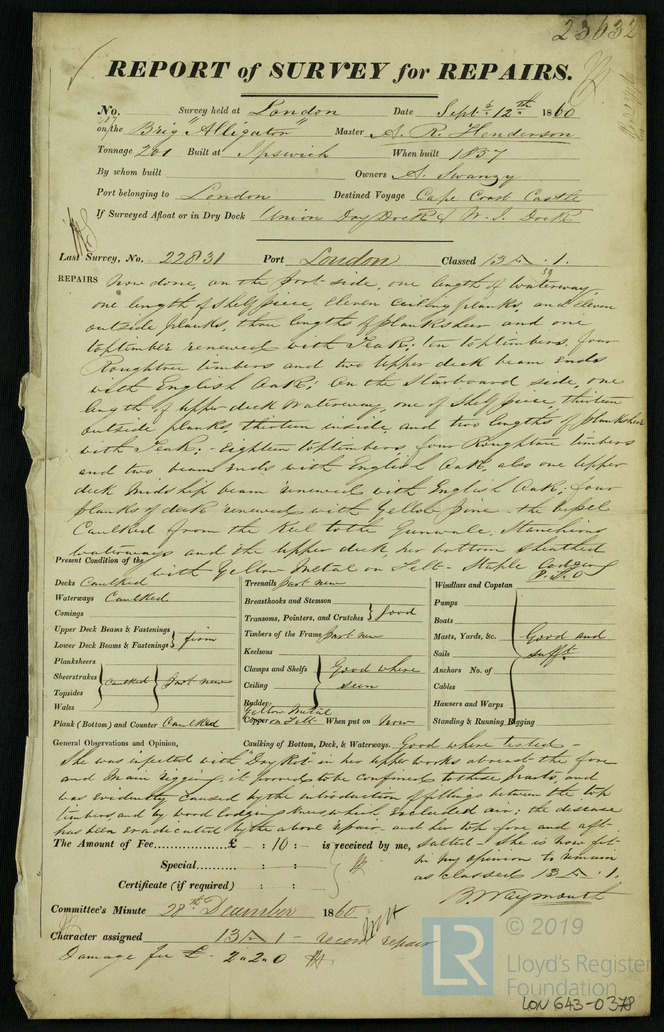 23632
REPORT of SURVEY for REPAIRS.
No. Survey held at London Date Septr. 12th 1860
on the Brig "Alligator" Master A. R. Henderson
Tonnage 201 Built at Ipswich When built 1837
By whom built Owners A. Swanzy
Port belonging to London Destined Voyage Cape Coast Castle
If Surveyed Afloat or in Dry Dock Union Dry Dock & W. I. Dock
Last Survey, No. 22831 Port London Classed 13 A . 1.
REPAIRS Now done, on the Port side, one length of Waterway,
one length of Shelf piece, Eleven Ceiling planks, and Eleven
outside planks, three lengths of planksheer and one
toptimber renewed with Teak; ten toptimbers, four
Roughtree timbers and two Upper deck beam ends
with English Oak; On the Starboard side, one
length of Upper deck Waterway, one of Shelf piece, thirteen
outside planks, thirteen inside, and two lengths of planksheer
with Teak; Eighteen toptimbers, four Roughtree timbers
and two beam ends with English Oak, also one Upper
deck Midship beam renewed with English Oak; four
planks of deck renewed with Yellow pine - the Vessel
Caulked from the Keel to the Gunwale, Stanchions
Waterways and the Upper deck, her bottom Sheathed
with Yellow Metal on Felt - Staple Lodging
P.T.O
Present Condition of the
Decks Caulked
Waterways Caulked
Comings
Upper Deck Beams & Fastenings
Lower Deck Beams & Fastenings firm
Planksheers
Sheerstrakes Caulked part new
Topsides
Wales
Plank (Bottom) and Counter Caulked
Treenails part new
Breasthooks and Stemson
Transoms, Pointers, and Crutches Good
Timbers of the Frame part new
Keelsons
Clamps and Shelfs Good where
Ceiling seen
Rudder
Yellow Metal
Copper on Felt When put on Now
Windlass and Capstan
Pumps
Boats
Masts, Yards, &c. Good and
Sails Sufft.
Anchors No. of
Cables
Hawsers and Warps
Standing & Running Rigging
General Observations and Opinion, Caulking of Bottom, Deck, & Waterways. Good where tested -
She was infected with "Dry Rot" in her upper works abreast the fore
and Main rigging, it proved to be confined to these parts, and
was evidently caused by the introduction of fillings between the top
timbers, and by wood lodging knees, which excluded air; the disease
has been eradicated by the above repair and her top fore and aft
salted - She is now fit
in my opinion to remain
as classed 13 A . 1.
The Amount of Fee £ - : 10 : - is received by me,
Special : :
Certificate (if required) : :
B. Waymouth
Committee's Minute 28th December 1860
Character assigned 13 A 1 - record repair
Damage fee £ - 2 " 2 " 0
LR
© 2019
Lloyd's Register
Foundation
LON 643-0378